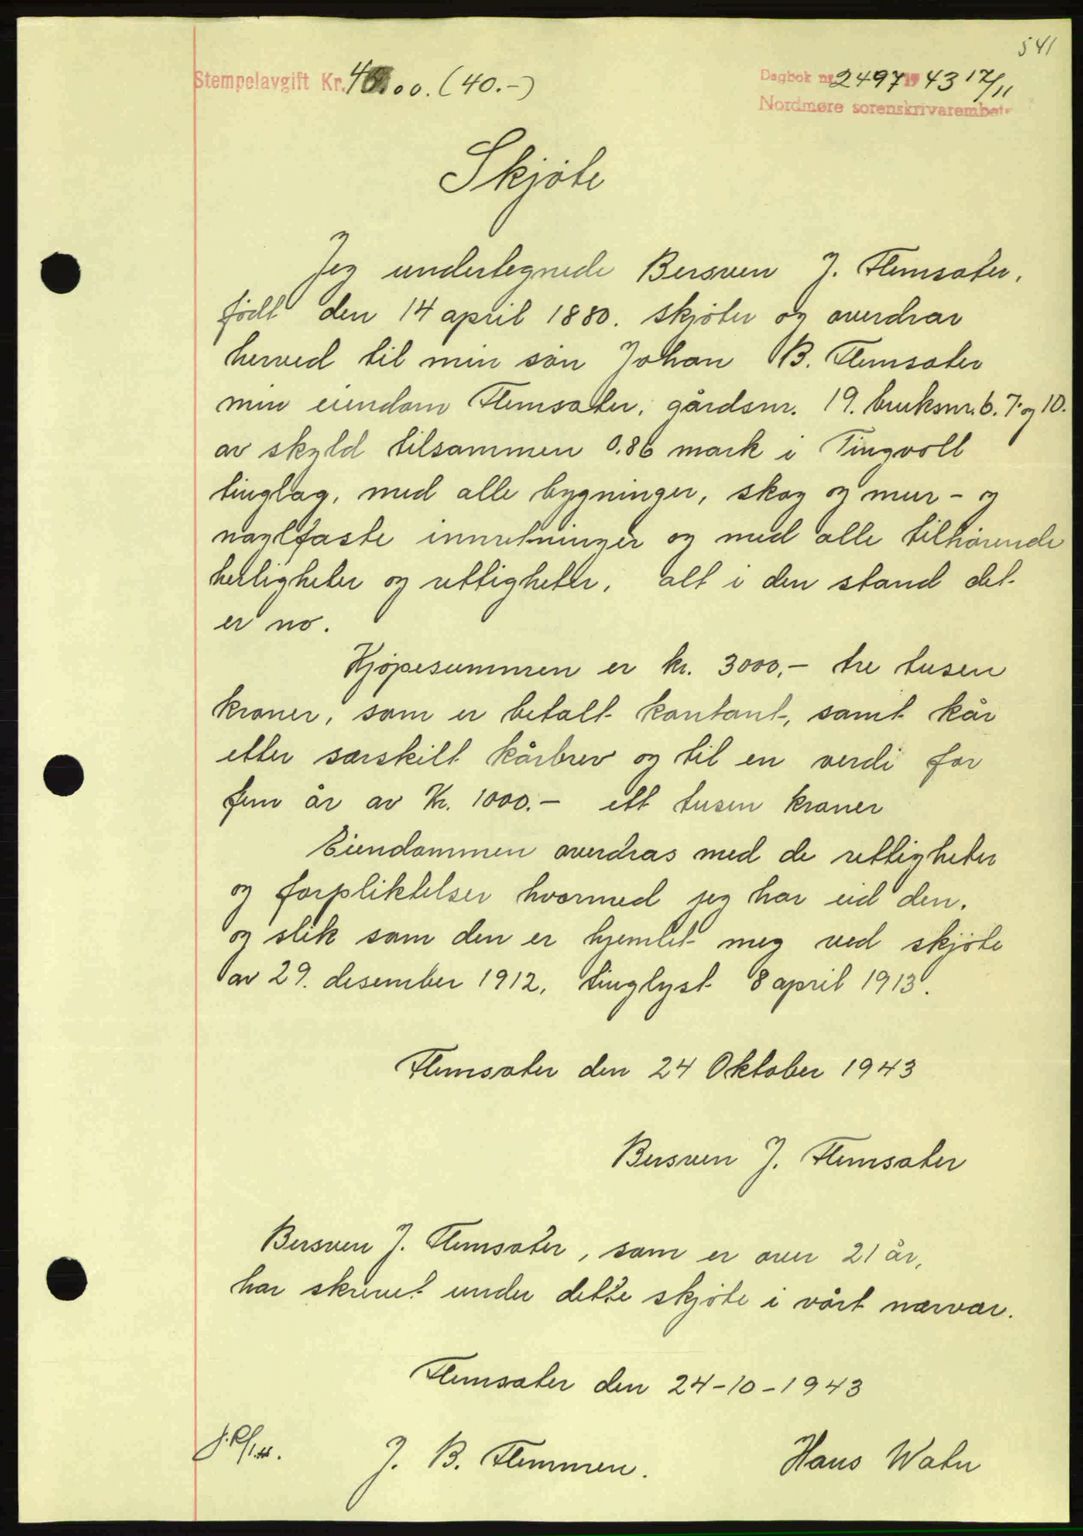 541
Stempelavgift Kr. 40.00. (40.-)
Dagbok nr. 2497 1943 17/11
Nordmøre sorenskrivarembete
Skjøte
Jeg undertegnede Bersven J. Flemsæter,
født den 14 april 1880. skjøter og overdrar
herved til min søn Johan B. Flemsæter
min eiendom Flemsæter, gårdsnr. 19. bruksnr. 6. 7. og 10.
av skyld tilsammen 0.86 mark i Tingvoll
tinglag, med alle bygninger, skog og mur- og
naglfaste innretninger og med alle tilhørende
herligheter og rettigheter, alt i den stand det
er no.
Kjøpesummen er kr. 3000,- tre tusen
kroner, som er betalt kontant, samt kår
etter særskilt kårbrev og til en verdi for
fem år av Kr. 1000.- ett tusen kroner
Eiendommen overdras med de rettigheter
og forpliktelser hvormed jeg har eid den,
og slik som den er hjemlet meg ved skjøte
av 29. desember 1912, tinglyst 8 april 1913.
Flemsæter den 24 Oktober 1943
Bersven J. Flemsæter
Bersven J. Flemsæter, som er over 21 år,
har skrevet under dette skjøte i vårt nærvær.
Flemsæter den 24-10-1943
J. B. Flemmen. Hans Wat